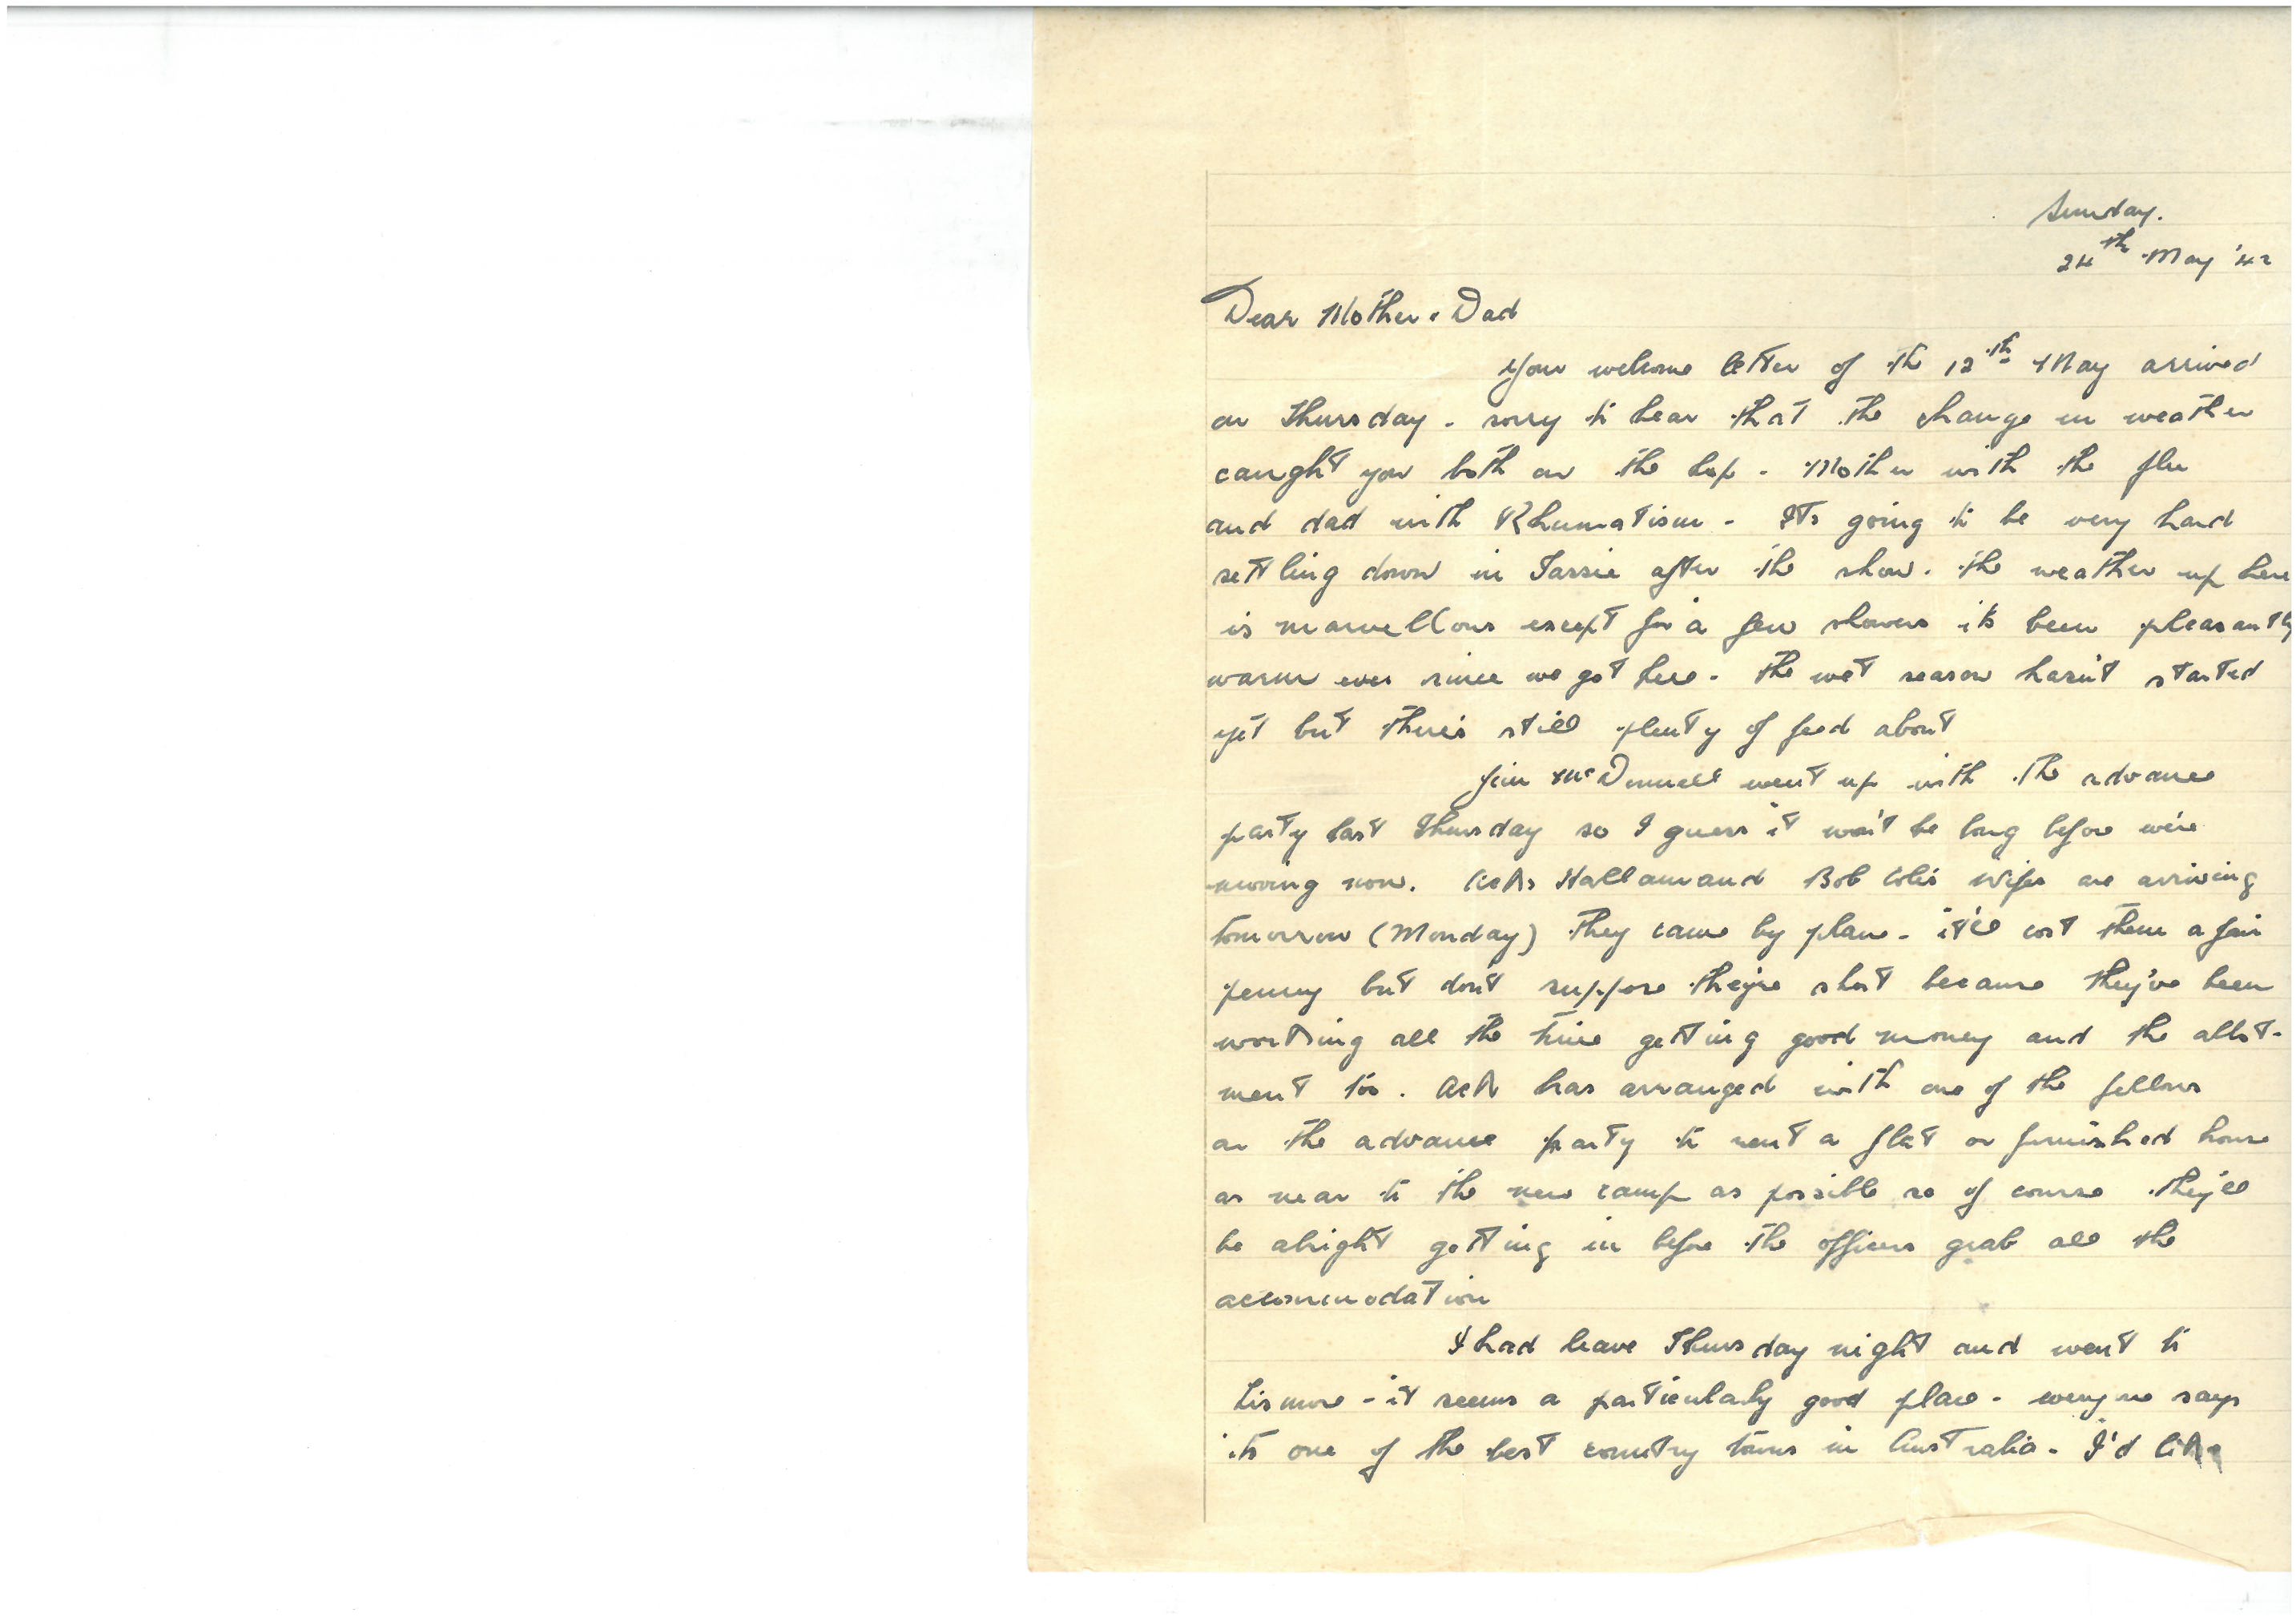 Sunday.
24th May '42
Dear Mother & Dad
Your welcome letter of the 12th May arrived
on Thursday - sorry to hear that the change in weather
caught you both on the hop - Mother with the flu
and dad with Rhumatism - Its going to be very hard
settling down in Tassie after the show. the weather up here
is marvellous except for a few showers its been pleasantly
warm ever since we got here. The wet season hasn't started
yet but there's still plenty of feed about
Jim McDonnell went up with the advance
party last Thursday so I guess it won't be long before we're
moving now. Ack Hallam and Bob Cole's wifes are arriving
tomorrow (Monday) they came by plane - it'll cost them a fair
penny but don't suppose they're short because they've been
working all the time getting good money and the allot-
ment too. Ack has arranged with one of the fellows
on the advance party to rent a flat or furnished house
as near to the new camp as possible so of course they'll
be alright getting in before the officers grab all the
accommodation
I had leave Thursday night and went to
Lismore - it seems a particularly good place - everyone says
its one of the best country towns in Australia - I'd like